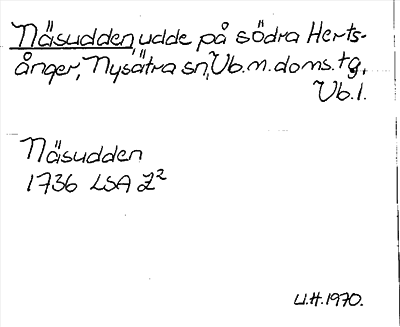 Näsudden, udde på södra Herts-
ånger, Nysätra sn, Vb.m.doms.tg,
Vb.l.
Näsudden
1736 LSA Z²
U.H.1970.